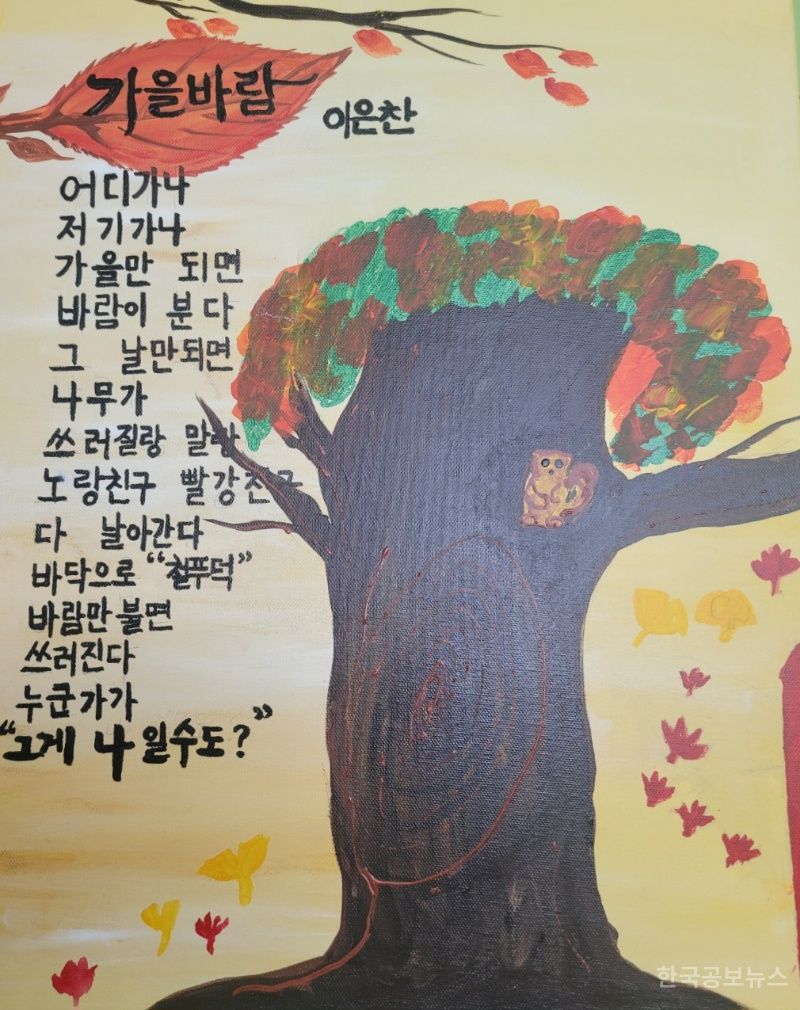 가을바람
이은찬
어디가나
저기가나
가을만 되면
바람이 분다
그 날만되면
나무가
쓰러질랑 말랑
노랑친구 빨강친구
다 날아간다
바닥으로 "철푸덕"
바람만불면
쓰러진다
누군가가
"그게 나일수도?"
한국공보뉴스